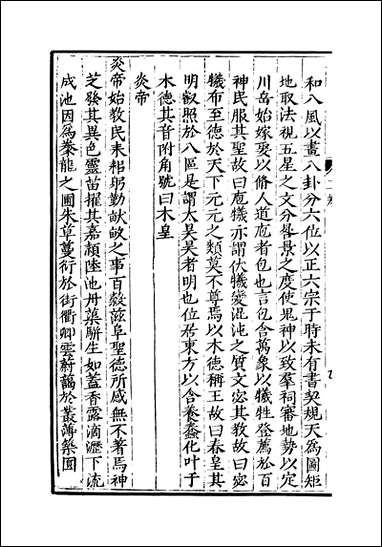 和八風以畫八卦分六位以正六宗于時未有書契規天為圖矩
地取法視五星之文分晷景之度使鬼神以致羣祠審地勢以定
川岳始嫁娶以脩人道庖者包也言包含萬象以犧牲登薦於百
神民服其聖故曰庖犧亦謂伏犧變混沌之質文宓其教故曰宓
犧布至德於天下元元之類莫不尊焉以木德稱王故曰春皇其
明叡照於八區是謂太昊昊者明也位居東方以含養蠢化叶于
木德其音附角號曰木皇
炎帝
炎帝始教民耒耜躬勤畎畝之事百榖滋阜聖德所感無不著焉神
芝發其異色靈苗擢其嘉穎陸池丹蕖駢生如蓋香露滴瀝下流
成池因為豢龍之圃朱草蔓衍於街衢卿雲蔚藹於叢薄築圓